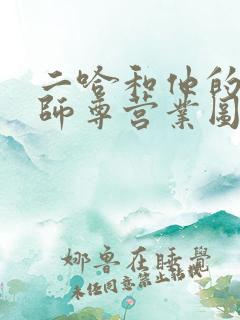 二哈和他的
师尊营业图
娜鲁在睡觉
未经同意禁止转载